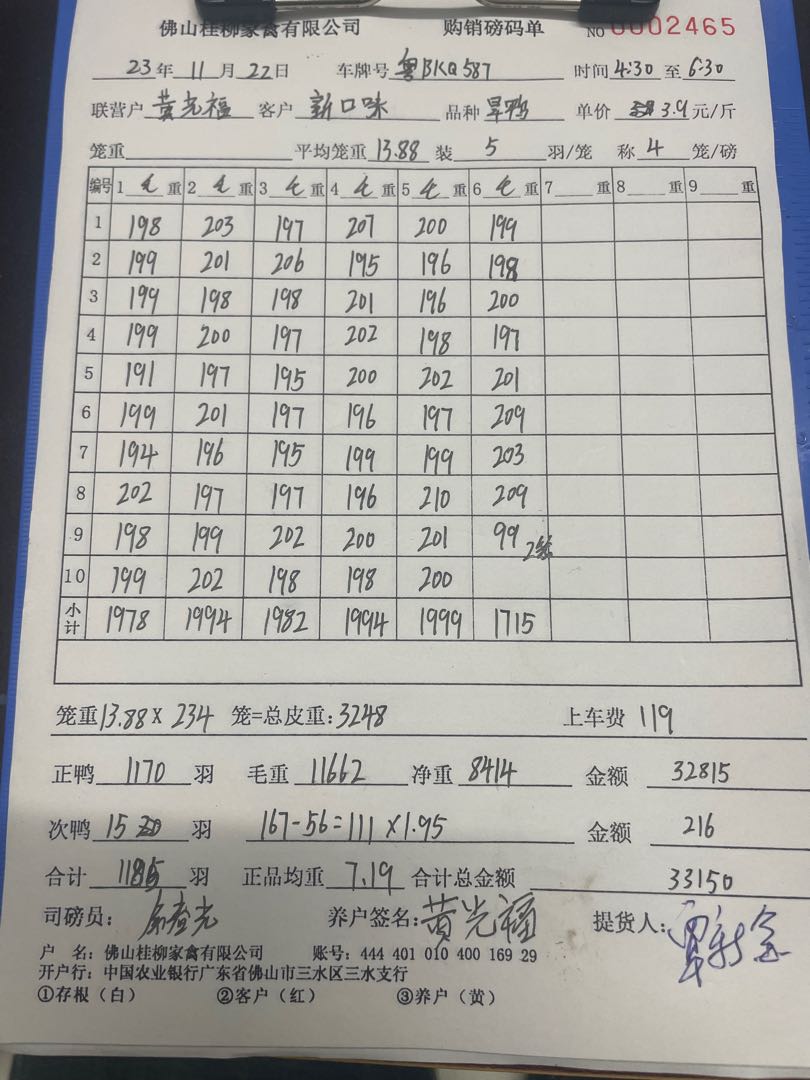 佛山桂柳家禽有限公司 购销磅码单 NO 0002465
23年 11月 22日 车牌号 粤BKQ587 时间 4:30 至 6:30
联营户 黄光福 客户 新口味 品种 旱鸭 单价 3.9 元/斤
笼重 平均笼重 13.88 装 5 羽/笼 称 4 笼/磅
编号 1 毛 重 2 毛 重 3 毛 重 4 毛 重 5 毛 重 6 毛 重 7 重 8 重 9 重
1 198 203 197 207 200 199
2 199 201 206 195 196 198
3 199 198 198 201 196 200
4 199 200 197 202 198 197
5 191 197 195 200 202 201
6 199 201 197 196 197 209
7 194 196 195 199 199 203
8 202 197 197 196 210 209
9 198 199 202 200 201 99 2笼
10 199 202 198 198 200
小计 1978 1994 1982 1994 1999 1715
笼重 13.88 X 234 笼=总皮重: 3248 上车费 119
正鸭 1170 羽 毛重 11662 净重 8414 金额 32815
次鸭 15 羽 167-56=111 X1.95 金额 216
合计 1185 羽 正品均重 7.19 合计总金额 33150
司磅员: 养户签名: 黄光福 提货人:
户 名: 佛山桂柳家禽有限公司 账号: 444 401 010 400 169 29
开户行: 中国农业银行广东省佛山市三水区三水支行
①存根(白) ②客户(红) ③养户(黄)